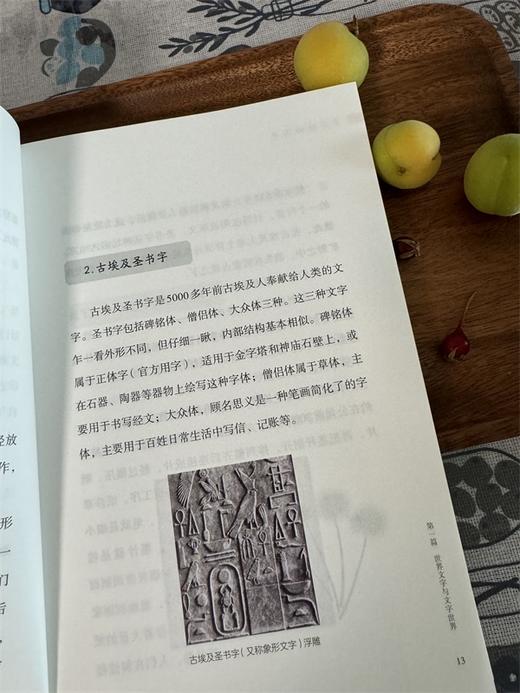 2.古埃及圣书字
古埃及圣书字是5000多年前古埃及人奉献给人类的文
字。圣书字包括碑铭体、僧侣体、大众体三种。这三种文字
乍一看外形不同，但仔细一瞅，内部结构基本相似。碑铭体
属于正体字（官方用字），适用于金字塔和神庙石壁上，或
在石器、陶器等器物上绘写这种字体；僧侣体属于草体，主
要用于书写经文；大众体，顾名思义是一种笔画简化了的字
体，主要用于百姓日常生活中写信、记账等。
古埃及圣书字（又称象形文字）浮雕
第一篇 世界文字与文字世界
13
轻放
作，
形
一
们
后